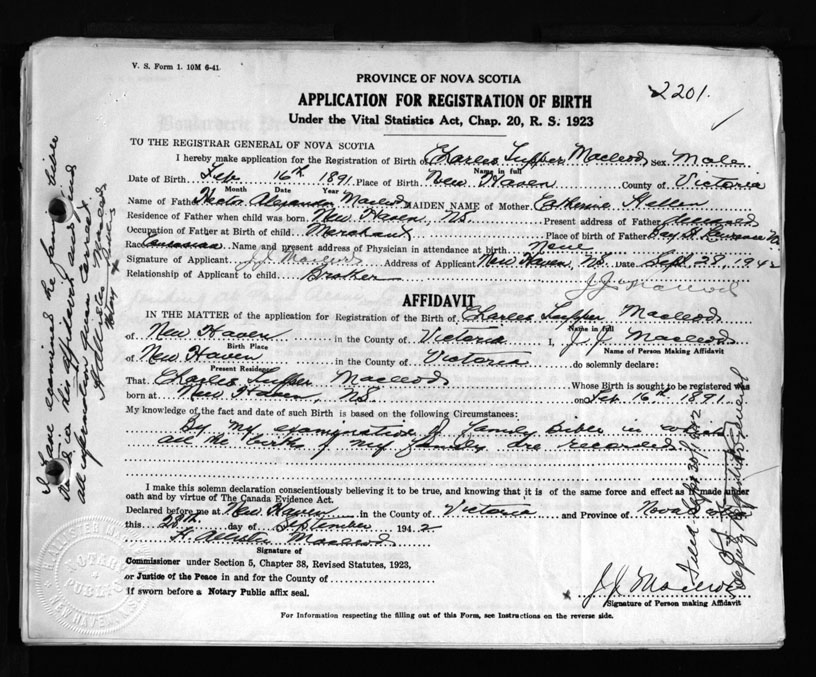 V. S. Form 1. 10M 6-41
2201.
PROVINCE OF NOVA SCOTIA
APPLICATION FOR REGISTRATION OF BIRTH
Under the Vital Statistics Act, Chap. 20, R. S. 1923
TO THE REGISTRAR GENERAL OF NOVA SCOTIA
I hereby make application for the Registration of Birth of Charles Tupper Macleod Sex Male
Name in full
Date of Birth Feb 16th 1891 Place of Birth New Haven County of Victoria
Month Day Year
Name of Father Hector Alexander Macleod MAIDEN NAME of Mother Catherine Hellen
Residence of Father when child was born New Haven, NS. Present address of Father deceased
Occupation of Father at Birth of child Merchant Place of birth of Father Bay St Lawrence NS
Race Canadian Name and present address of Physician in attendance at birth None
Signature of Applicant J J Macleod Address of Applicant New Haven, NS. Date Sept 28, 1942
Relationship of Applicant to child Brother J J Macleod
AFFIDAVIT
IN THE MATTER of the application for Registration of the Birth of Charles Tupper Macleod
Name in full
of New Haven in the County of Victoria I, J. J. Macleod
Birth Place Name of Person Making Affidavit
of New Haven in the County of Victoria do solemnly declare:
Present Residence
That Charles Tupper Macleod Whose Birth is sought to be registered was
born at New Haven, NS. on Feb 16th 1891
My knowledge of the fact and date of such Birth is based on the following Circumstances:
By my examination of family Bible in which
all the births of my family are recorded
I make this solemn declaration conscientiously believing it to be true, and knowing that it is of the same force and effect as if made under
oath and by virtue of The Canada Evidence Act.
Declared before me at New Haven in the County of Victoria and Province of Nova Scotia
this 28th day of September 1942
H. Allister Macleod
Signature of
Commissioner under Section 5, Chapter 38, Revised Statutes, 1923,
or Justice of the Peace in and for the County of
If sworn before a Notary Public affix seal.
x J J Macleod
Signature of Person making Affidavit
For Information respecting the filling out of this Form, see Instructions on the reverse side.
I have examined the family Bible
in this affidavit and find
all information given correct
H Allister Macleod
Notary Public
NOTARY PUBLIC
NEW HAVEN